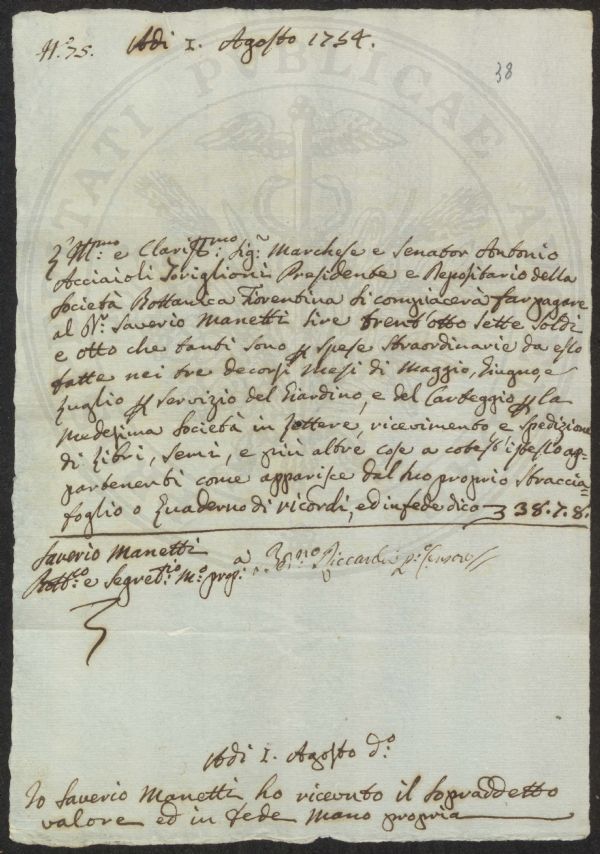 N.° 75.
Adi 1. Agosto 1754.
38
L'Ill.mo e Clariss.mo Sig.r Marchese e Senator Antonio
Acciaioli Toriglioni Presidente e Depositario della
Società Bottanica Fiorentina si compiacerà far pagare
al Dr. Saverio Manetti lire trent'otto sette soldi
e otto che tanti sono p spese straordinarie da esso
fatte nei tre decorsi Mesi di Maggio, Giugno, e
Luglio p servizio del Giardino, e del Carteggio p la
medesima Società in Lettere, ricevimento e spedizione
di Libri, Semi, e più altre cose a cotest' ap-
partenenti come apparisce dal suo proprio Straccia
foglio o Quaderno di ricordi, ed in fede dico 38.7.8.
Saverio Manetti
Bott.co e Segret.rio M.o prop.a
Riccardi
Adi 1. Agosto d.°
Io Saverio Manetti ho ricevuto il sopraddetto
valore ed in fede Mano propria
TATI PUBLICAE